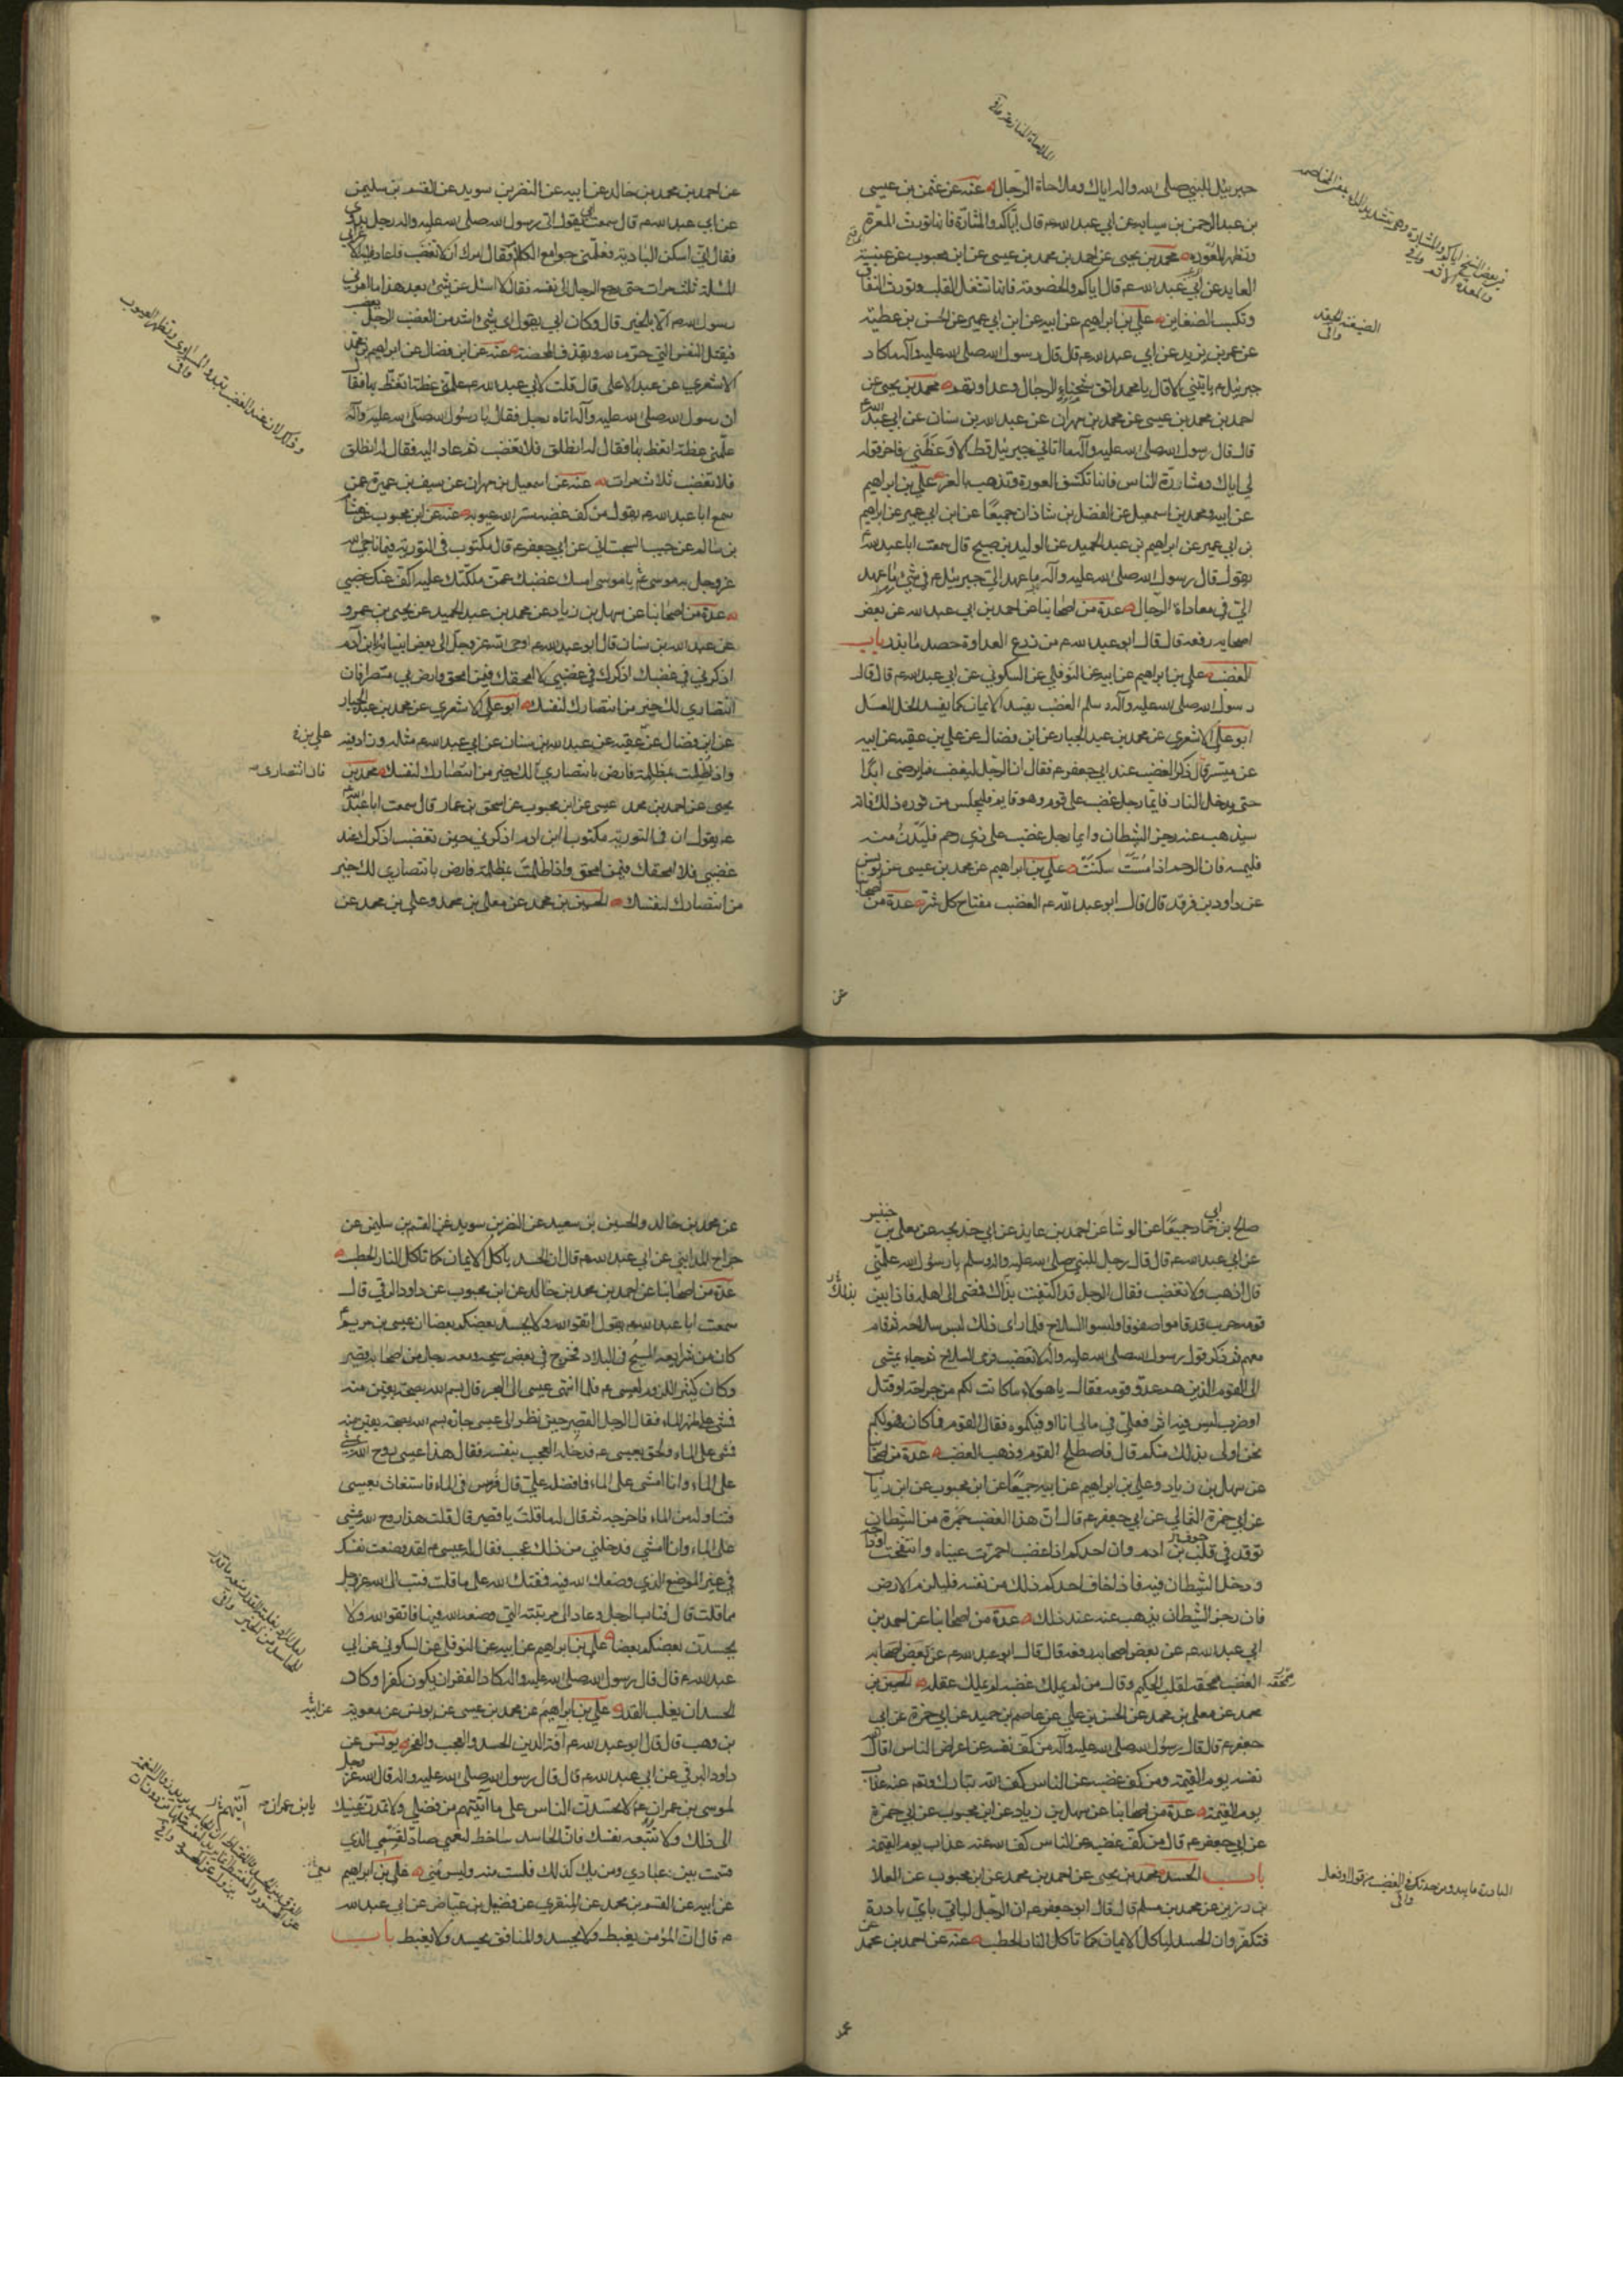 جبرئيل للنبي صلى الله عليه واله اياك وملاحاة الرجال عنه عن عثمن بن عيسى
بن عبد الرحمن بن سيابه عن ابي عبد الله ع م قال اياكم والمشارّة فانها تورث المعرّة
وتظهر المعورة محمد بن يحيى عن احمد بن محمد بن عيسى عن ابن محبوب عن عنبسة
العابد عن ابي عبد الله ع م قال اياكم والخصومة فانها تشغل القلب وتورث النفاق
وتكسب الضغاين علي بن ابراهيم عن ابيه عن ابن ابي عمير عن الحسن بن عطية
عن عمر بن يزيد عن ابي عبد الله ع م قال قال رسول الله صلى الله عليه وآله ما كاد
جبرئيل ع م ياتيني الا قال يا محمد اتق شحناء الرجال وعداوتهم محمد بن يحيى عن
احمد بن محمد بن عيسى عن محمد بن مهران عن عبد الله بن سنان عن ابي عبد الله
قال قال رسول الله صلى الله عليه وآله ما اتاني جبرئيل قط الا وعظني فاخر قوله
لي اياك ومشارّة الناس فانها تكشف العورة وتذهب بالعز علي بن ابراهيم
عن ابيه ومحمد بن اسمعيل عن الفضل بن شاذان جميعًا عن ابن ابي عمير عن ابراهيم
بن ابي عمير عن ابراهيم بن عبد الحميد عن الوليد بن صبيح قال سمعت ابا عبد الله
يقول قال رسول الله صلى الله عليه وآله ما عهد الي جبرئيل ع م في شئ ما عهد
الي في معاداة الرجال عدة من اصحابنا عن احمد بن ابي عبد الله عن بعض
اصحابه رفعه قال قال ابو عبد الله ع م من زرع العداوة حصد ما بذر باب
الغضب علي بن ابراهيم عن ابيه عن النوفلي عن السكوني عن ابي عبد الله ع م قال قال
رسول الله صلى الله عليه وآله وسلم الغضب يفسد الايمان كما يفسد الخل العسل
ابو علي الاشعري عن محمد بن عبد الجبار عن ابن فضال عن علي بن عقبه عن ابيه
عن ميسر قال ذكر الغضب عند ابي جعفر ع م فقال ان الرجل ليغضب فما يرضى ابدًا
حتى يدخل النار فايما رجل غضب على قوم وهو قايم فليجلس من فوره ذلك فانه
سيذهب عنه رجز الشيطان وايما رجل غضب على ذي رحم فليدن منه
فليمسه فان الرحم اذا مسّت سكنت علي بن ابراهيم عن محمد بن عيسى عن يونس
عن داود بن فرقد قال قال ابو عبد الله ع م الغضب مفتاح كل شر عدة من اصحابنا
عن
الضغينة الحقد
وافي
عن احمد بن محمد بن خالد عن ابيه عن النضر بن سويد عن القسم بن سليمن
عن ابي عبد الله ع م قال سمعت ابي يقول اتى رسول الله صلى الله عليه واله رجل بدوي
فقال اني اسكن البادية فعلمني جوامع الكلام فقال امرك ان لا تغضب فاعاد عليه الاعرابي
المسئلة ثلث مرات حتى رجع الرجل الى نفسه فقال لا اسئل عن شئ بعد هذا ما امرني
رسول الله ع م الا بالخير قال وكان ابي يقول اي شئ اشد من الغضب ان الرجل يغضب
فيقتل النفس التي حرم الله ويقذف المحصنة عنه عن ابن فضال عن ابراهيم بن محمد
الاشعري عن عبد الاعلى قال قلت لابي عبد الله ع م علمني عظة اتعظ بها فقال
ان رسول الله صلى الله عليه وآله اتاه رجل فقال يا رسول الله صلى الله عليه وآله
علمني عظة اتعظ بها فقال له انطلق فلا تغضب ثم عاد اليه فقال له انطلق
فلا تغضب ثلاث مرات عنه عن اسمعيل بن مهران عن سيف بن عميرة عمن
سمع ابا عبد الله ع م يقول من كف غضبه ستر الله عورته عنه عن ابن محبوب عن هشام
بن سالم عن حبيب السجستاني عن ابي جعفر ع م قال مكتوب في التورية فيما ناجى الله
عز وجل به موسى ع م يا موسى امسك غضبك عمن ملكتك عليه اكف عنك غضبي
عدة من اصحابنا عن سهل بن زياد عن محمد بن عبد الحميد عن يحيى بن عمرو
عن عبد الله بن سنان قال قال ابو عبد الله ع م اوحى الله عز وجل الى بعض انبيائه ابن آدم
اذكرني في غضبك اذكرك في غضبي لا امحقك فيمن امحق وارض بي منتصرا فان
انتصاري لك خير من انتصارك لنفسك ابو علي الاشعري عن محمد بن عبد الجبار
عن ابن فضال عن عقبه عن عبد الله بن سنان عن ابي عبد الله ع م مثله وزاد فيه
علي بن
واذا ظلمت بمظلمة فارض بانتصاري لك خير من انتصارك لنفسك محمد بن
فان انتصاري
يحيى عن احمد بن محمد عيسى عن ابن محبوب عن اسحق بن عمار قال سمعت ابا عبد الله
ع م يقول ان في التورية مكتوبا ابن ادم اذكرني حين تغضب اذكرك عند
غضبي فلا امحقك فيمن امحق واذا ظلمت بمظلمة فارض بانتصاري لك خير
من انتصارك لنفسك الحسين بن محمد عن معلى بن محمد وعلي بن محمد عن
صالح بن ابي حماد جميعًا عن الوشا عن احمد بن عايذ عن ابي خديجه عن معلى بن خنيس
عن ابي عبد الله ع م قال قال رجل للنبي صلى الله عليه واله وسلم يا رسول الله علمني
قال اذهب ولا تغضب فقال الرجل قد اكتفيت بذاك فمضى الى اهله فاذا بين
بذلك
قومه حرب قد قاموا صفوفا ولبسوا السلاح فلما راى ذلك لبس سلاحه ثم قام
معهم ثم ذكر قول رسول الله صلى الله عليه وآله لا تغضب فرمى السلاح ثم جاء يمشي
الى القوم الذين هم عدو قومه فقال يا هؤلاء ما كانت لكم من جراحة او قتل
او ضرب ليس فيه اثر فعلي في مالي انا اوفيكموه فقال القوم فما كان فهو لكم
نحن اولى بذلك منكم قال فاصطلح القوم وذهب الغضب عدة من اصحابنا
عن سهل بن زياد وعلي بن ابراهيم عن ابيه جميعًا عن ابن محبوب عن ابن رئاب
عن ابي حمزة الثمالي عن ابي جعفر ع م قال ان هذا الغضب جمرة من الشيطان
توقد في قلب بن ادم وان احدكم اذا غضب احمرت عيناه وانتفخت اوداجه
ودخل الشيطان فيه فاذا خاف احدكم ذلك من نفسه فليلزم الارض
فان رجز الشيطان يذهب عنه عند ذلك عدة من اصحابنا عن احمد بن
ابي عبد الله ع م عن بعض اصحابه رفعه قال قال ابو عبد الله ع م عن بعض اصحابه
الغضب ممحقة لقلب الحكيم وقال من لم يملك غضبه لم يملك عقله الحسين بن
محمد عن معلى بن محمد عن الحسن بن علي عن عاصم بن حميد عن ابي حمزة عن ابي
جعفر ع م قال قال رسول الله صلى الله عليه وآله من كف نفسه عن اعراض الناس اقال الله
نفسه يوم القيمة ومن كف غضبه عن الناس كف الله تبارك وتع عنه عذاب
يوم القيمة عدة من اصحابنا عن سهل بن زياد عن ابن محبوب عن ابي حمزة
عن ابي جعفر ع م قال من كف غضبه عن الناس كف الله عنه عذاب يوم القيمة
باب الحسد محمد بن يحيى عن احمد بن محمد عن ابن محبوب عن العلا
بن رزين عن محمد بن مسلم قال قال ابو جعفر ع م ان الرجل لياتي باي بادرة
فتكفر وان الحسد لياكل الايمان كما تاكل النار الحطب عنه عن احمد بن محمد
البادرة ما يبدو من حدتك في الغضب من قول او فعل
وافي
عن محمد بن خالد والحسين بن سعيد عن النضر بن سويد عن القسم بن سليمن عن
جراح المدايني عن ابي عبد الله ع م قال ان الحسد ياكل الايمان كما تاكل النار الحطب
عدة من اصحابنا عن احمد بن محمد بن خالد عن ابن محبوب عن داود الرقي قال
سمعت ابا عبد الله ع م يقول اتقوا الله ولا يحسد بعضكم بعضا ان عيسى بن مريم
كان من شرايعه السيح في البلاد فخرج في بعض سيحه ومعه رجل من اصحابه قصير
وكان كثير اللزوم لعيسى ع م فلما انتهى عيسى الى البحر قال بسم الله بصحة يقين منه
فمشى على ظهر الماء فقال الرجل القصير حين نظر الى عيسى جازه بسم الله بصحة يقين منه
فمشى على الماء ولحق بعيسى ع م فدخله العجب بنفسه فقال هذا عيسى روح الله يمشي
على الماء وانا امشي على الماء فما فضله علي قال فرمس في الماء فاستغاث بعيسى
فتناوله من الماء فاخرجه ثم قال له ما قلت يا قصير قال قلت هذا روح الله يمشي
على الماء وانا امشي فدخلني من ذلك عجب فقال له عيسى ع م لقد وضعت نفسك
في غير الموضع الذي وضعك الله فيه فمقتك الله على ما قلت فتب الى الله عز وجل
مما قلت قال فتاب الرجل وعاد الى مرتبته التي وضعه الله فيها فاتقوا الله ولا
يحسدن بعضكم بعضا علي بن ابراهيم عن ابيه عن النوفلي عن السكوني عن ابي
عبد الله ع م قال قال رسول الله صلى الله عليه واله كاد الفقر ان يكون كفرا وكاد
الحسد ان يغلب القدر علي بن ابراهيم عن محمد بن عيسى عن يونس عن معوية
بن وهب قال قال ابو عبد الله ع م آفة الدين الحسد والعجب والفخر يونس عن
داود الرقي عن ابي عبد الله ع م قال قال رسول الله صلى الله عليه واله قال الله عز وجل
لموسى بن عمران ع م لا تحسدن الناس على ما آتيتهم من فضلي ولا تمدن عينيك
يا بن عمران
الى ذلك ولا تتبعه نفسك فان الحاسد ساخط لنعمي صاد لقسمي الذي
قسمت بين عبادي ومن يك كذلك فلست منه وليس مني علي بن ابراهيم
عن ابيه عن القسم بن محمد عن المنقري عن فضيل بن عياض عن ابي عبد الله
ع م قال ان المؤمن يغبط ولا يحسد والمنافق يحسد ولا يغبط باب